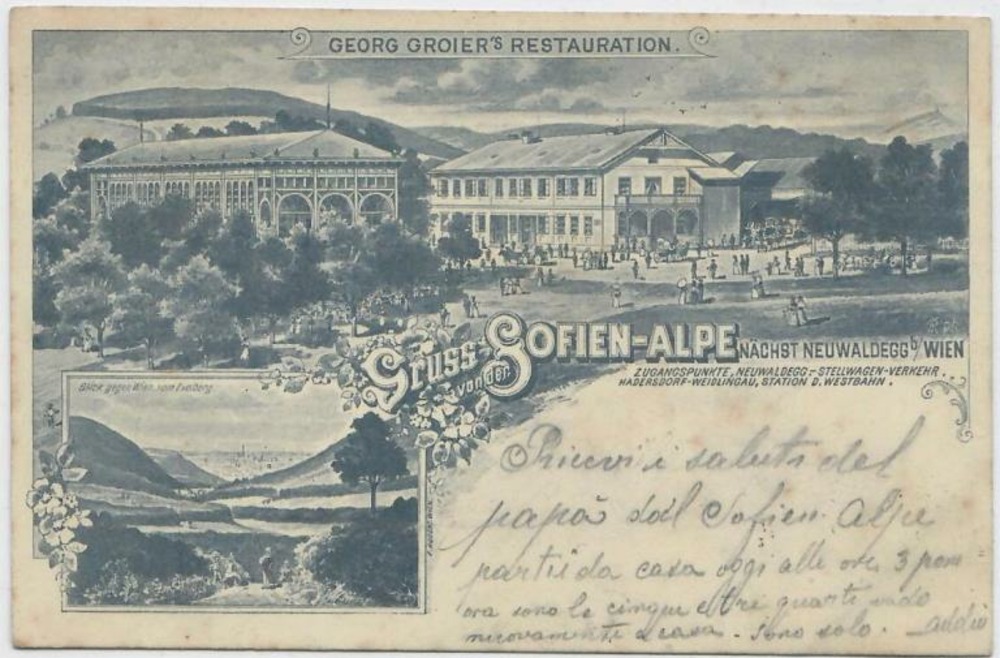 GEORG GROIER'S RESTAURATION.
Gruss von der SOFIEN-ALPE
NÄCHST NEUWALDEGG b/ WIEN
ZUGANGSPUNKTE, NEUWALDEGG:- STELLWAGEN-VERKEHR.
HADERSDORF-WEIDLINGAU, STATION D. WESTBAHN.
Blick gegen Wien vom
Ricevi i saluti del
papà dal Sofien Alpe
partii da casa oggi alle ore 3 pom
ora sono le cinque e tre quarti vado
nuovamente a casa. Sono solo. addio